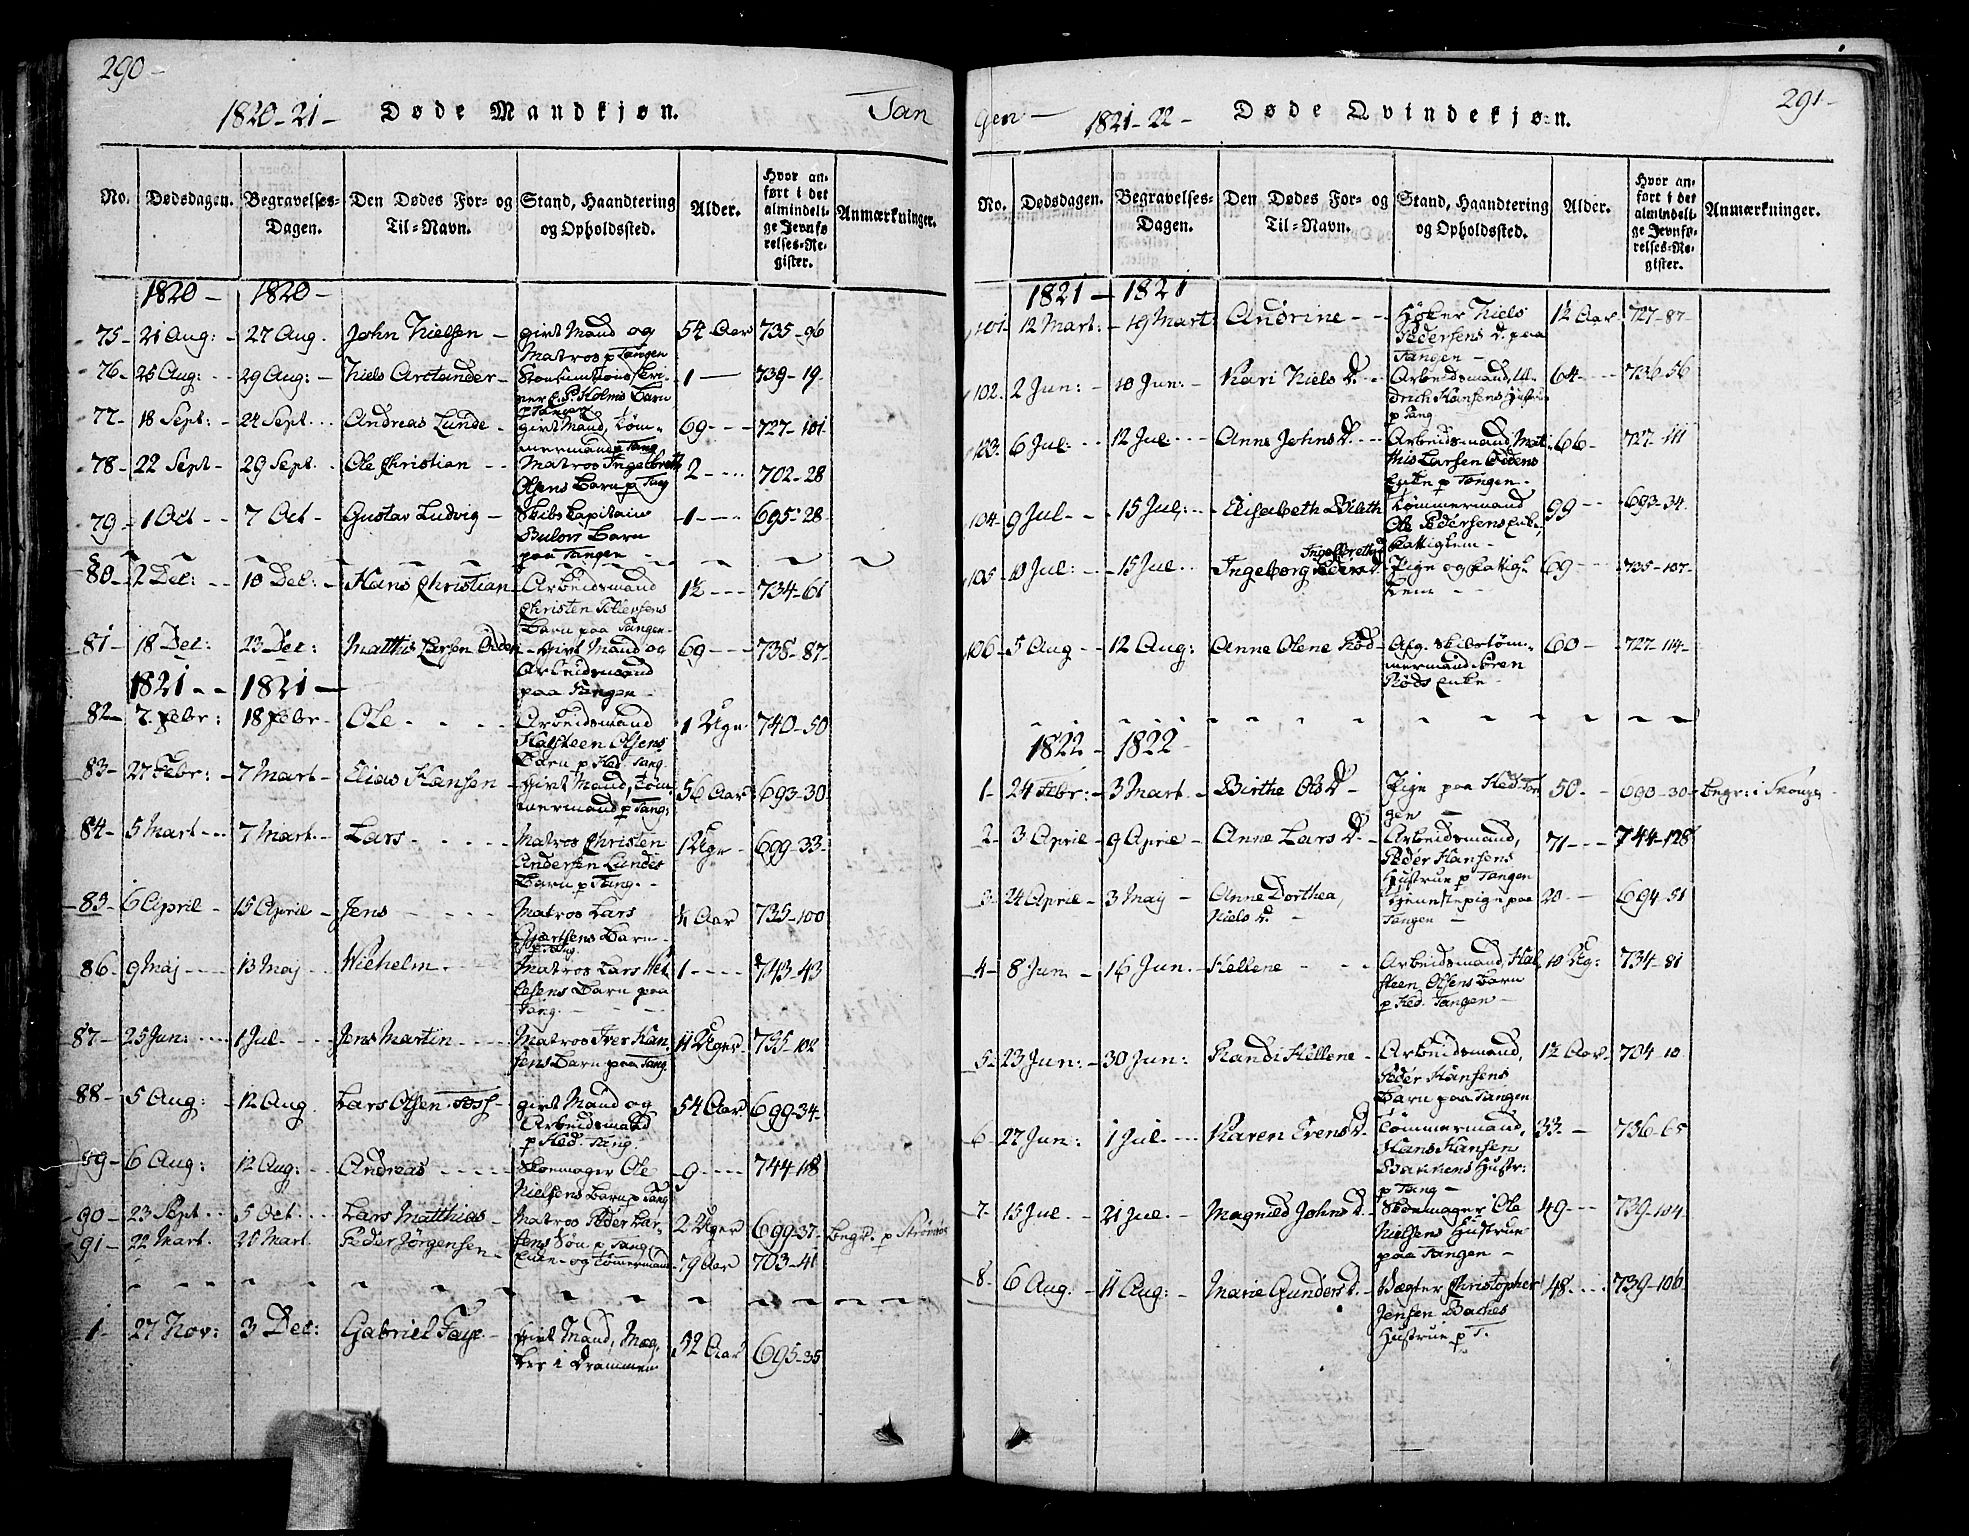 290-
1820-21- Døde Mandkjøn. Tan
No. Dødsdagen. Begravelses-Dagen. Den Dødes For- og Til-Navn. Stand, Haandtering og Opholdssted. Alder. Hvor anført i det almindelige Jevnførelses-Register. Anmærkninger.
1820- 1820-
75- 21 Aug: 27 Aug. John Nielsen - givt Mand og 54 Aar 735-96
Matros p Tangen
76- 25 Aug: 29 Aug: Niels Arctander - 1 739-19
E. P. Holms Barn
p Tangen
77- 18 Sept: 24 Sept. Andreas Lunde - givt Mand, Tøm- 69 727-101
mermand p Tang
78- 22 Sept- 29 Sept. Ole Christian - Matros Ingelbreth 2 702-28
Olsens Barn p Tang
79- 1 Oct - 7 Oct - Gustav Ludvig - Skibs Kapitain 1 695-28
Barn
paa Tangen -
80- 2 Dec: 10 Dec: Hans Christian - Arbeidsmand 1½ 734-61
Christen
Barn paa Tangen-
81- 18 Dec: 23 Dec: Matthis Larsen Odden - givt Mand og 69 738-87
Arbeidsmand
paa Tangen-
1821 - 1821 -
82- 7 Febr: 18 Febr- Ole - Arbeidsmand 1 Uge 740-50
Halsteen Olsens
Barn p Ned. Tang.
83- 27 Febr: 7 Mart- Elias Hansen - givt Mand, Tøm- 56 Aar 693-30
mermand p Tang:
84- 5 Mart - 7 Mart- Lars - Matros Christen 1 Uge 699-33
Andersen Lundes
Barn p Tang. -
85- 6 April - 15 April - Jens - Matros Lars 4 Aar 735-100
Barn
p Tang.
86- 9 Maj - 13 Maj - Wilhelm - Matros Lars 1 743-43
Barn paa
Tang. -
87- 25 Jun: 1 Jul - Jens Martin - Matros Iver Han- 11 Uger 735-102
sens Barn paa Tang.
88- 5 Aug: 12 Aug. Lars Olsen Foss - givt Mand og 54 Aar 699-34
Arbeidsmand
p Ned. Tang.
89- 6 Aug: 12 Aug: Andreas - Skomager Ole 9 744-118
Nielsens Barn p Tang
90- 23 Sept. 5 Oct. Lars Matthias - Matros Peder Lar- 2 Uger 699-37 Begr. p Strømsø
sens Søn p Tang.
91- 22 Mart. 28 Mart Peder Jørgensen - Enke- og Tømermand 79 Aar 703-41
1- 27 Nov: 3 Dec: Gabriel Faye - givt Mand, Mæg- 52 Aar 695-35
ler i Drammen
gen - 1821-22- Døde Qvindekjøn. 291-
No. Dødsdagen. Begravelses-Dagen. Den Dødes For- og Til-Navn. Stand, Haandtering og Opholdssted. Alder. Hvor anført i det almindelige Jevnførelses-Register. Anmærkninger.
1821 - 1821
101- 12 Mart: - 19 Mart: Andrine - Høker Niels 1½ Aar 727-87
Pedersens D. paa
Tangen -
102- 2 Jun: - 10 Jun: - Kari Niels D. - Arbeidsmand, Ul- 64 736-56
drich Hansens Hustrue
p Tang
103- 6 Jul: - 12 Jul: - Anne Johns D. - Arbeidsmand, Mat- 66 727-111
this Larsen Oddens
Enke p Tangen -
104- 9 Jul - 15 Jul: - Elisabeth - Tømmermand 99 693-34
Ole Pedersens Enke,
Fattiglem -
105- 10 Jul: - 15 Jul - Ingeborg Ingelbretts D. Pige og Fattig- 69 735-107
lem -
106- 5 Aug - 12 Aug: Anne Olene Rød - Afg. Skibstøm- 60 727-114
mermand Søren
Røds Enke -
1822 - 1822 -
1- 24 Febr: - 3 Mart. - Birthe Ols D. - Pige paa Ned. Tan- 50 690-30 Begr: i Skouge
gen -
2- 3 April - 9 April - Anne Lars D. - Arbeidsmand, 71 744-128
Peder Hansens
Hustrue p Tangen
3- 24 April - 3 Maj - Anne Dorthea, Tjenestepige paa 20 694-51
Niels D. - Tangen -
4- 8 Jun - 16 Jun. - Hellene - Arbeidsmand, Hal- 10 Ug: 734-81
steen Olsens Barn
p Ned. Tangen -
5- 23 Jun: - 30 Jun: Randi Hellene - Arbeidsmand, 1½ Aar. 704-10
Peder Hansens
Barn paa Tangen
6- 27 Jun: 1 Jul - Karen Evens D. - Tømmermand, 33 736-65
Hans Hansen
Hustr:
p Tang -
7- 15 Jul - 21 Jul - Magnild Johns D. - Skomager Ole 49 739-104
Nielsens Hustrue
paa Tangen -
8- 6 Aug. - 11 Aug: - Marie Gunders D. - Vægter Christopher 48 739-106
Jensen Baches
Hustrue p T.